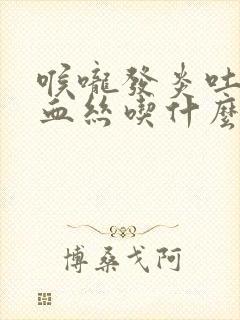 喉嚨發炎吐
血絲喫什麼
博桑戈阿